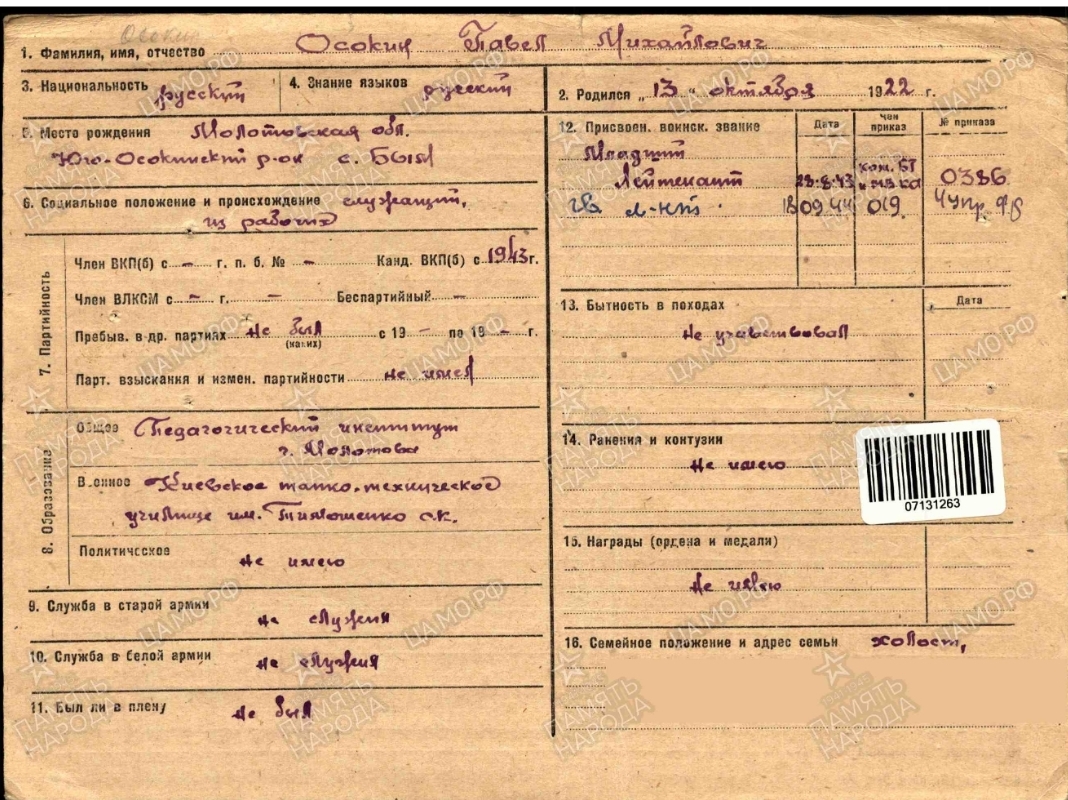 Осокин
1. Фамилия, имя, отчество Осокин Павел Михайлович
3. Национальность русский
4. Знание языков русский
5. Место рождения Молотовская обл.
Юго-Осокинский р-он с. Бым
6. Социальное положение и происхождение служащий,
из рабочих
7. Партийность
Член ВКП(б) с - г. п. б. № - Канд. ВКП(б) с 1943 г.
Член ВЛКСМ с - г. - Беспартийный -
Пребыв. в др. партиях не был с 19 - по 19 - г.
(каких)
Парт. взыскания и измен. партийности не имел
8. Образование
Общее Педагогический институт
г. Молотова
Военное Киевское танко-техническое
училище им. Тимошенко С.К.
Политическое
не имею
9. Служба в старой армии
не служил
10. Служба в белой армии
не служил
11. Был ли в плену
не был
2. Родился „13“ октября 1922 г.
12. Присвоен. воинск. звание Дата Чей приказ № приказа
Младший
Лейтенант 28.8.43 ком. БТ и МВ КА 0386
гв. л-нт. 18 09.44 019. 4 Упр. ф.
13. Бытность в походах Дата
Не участвовал
14. Ранения и контузии
Не имею
07131263
15. Награды (ордена и медали)
Не имею
16. Семейное положение и адрес семьи холост,
ПАМЯТЬ НАРОДА
ЦАМО.РФ